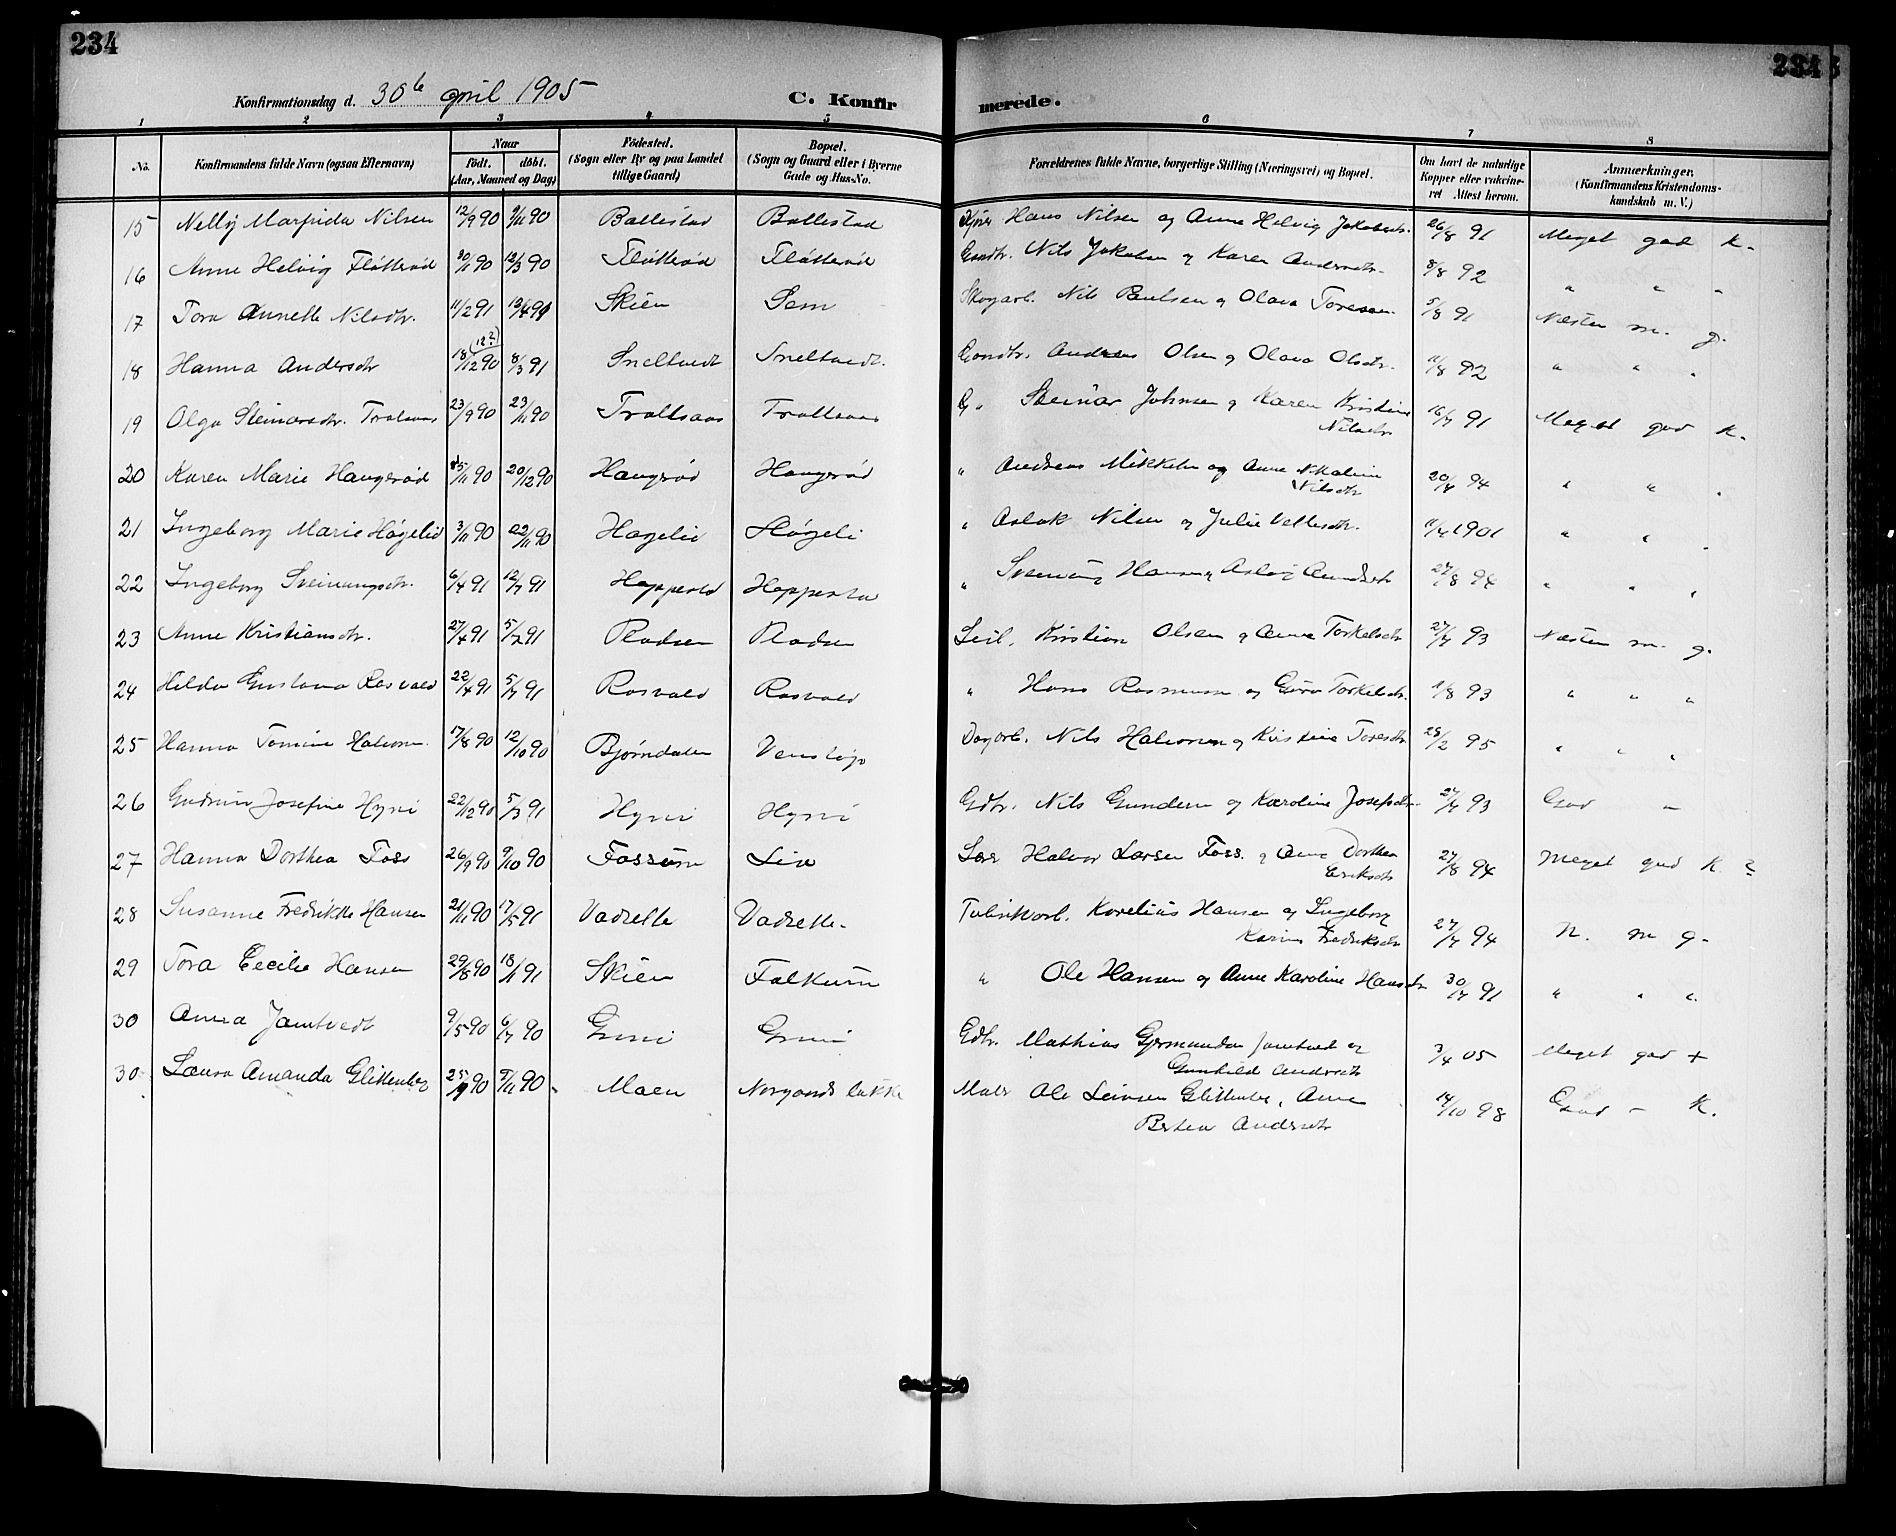 234
234
Konfirmationsdag d. 30te april 1905
C. Konfirmerede.
1 2 3 4 5 6 7 8
No. Konfirmandens fulde Navn (ogsaa Efternavn) Naar født. døbt. (Aar, Maaned og Dag) Fødested. (Sogn eller By og paa Landet tillige Gaard) Bopæl. (Sogn og Gaard eller i Byerne Gade og Hus-No. Forældrenes fulde Navne, borgerlige Stilling (Næringsvei) og Bopæl. Om havt de naturlige Kopper eller vakcineret Attest herom. Anmærkninger. (Konfirmandens Kristendomskundskab m. V.)
15 Nelly Marpida Nilsen 12/9 90 9/11 90 Ballestad Ballestad Hans Nilsen og Anne Helvig Jakobsdtr. 26/8 91 Meget god K.
16 Anne Helvig Fløtterød 30/1 90 12/3 90 Fløtterød Fløtterød Gaardbr. Nils Jakobsen og Karen Andersdtr. 8/8 92 " " "
17 Tora Annette Nilsdtr. 11/2 91 13/4 91 Skien Sem Skogarb. Nils Paulsen og Olava Toresen 5/8 91 Næsten m. g.
18 Hanna Andersdtr 18/12 90 (12?) 8/3 91 Sneltvedt Sneltvedt. Gaardbr. Andreas Olsen og Olava Olsdtr. 11/8 92 " " "
19 Olga Steinarsdtr. Traalsaas 23/9 90 23/11 90 Traltsaas Traltsaas G " Steinar Johnsen og Karen Kristine Nilsdtr 16/7 91 Meget god K.
20 Karen Marie Haugerød 25/11 90 20/12 90 Haugerød Haugerød " Andreas Mikkelsen og Anne Maline Nilsdtr 20/4 94 " " "
21 Ingeborg Marie Høgelid 3/11 90 22/11 90 Høgelid Høgeli " Aslak Nilsen og Julie Vettesdtr. 11/4 1901 " " "
22 Ingeborg Sveinungsdtr. 6/4 91 12/7 91 Heppestad Heppestad " Sveinung Hansen og Aslaug Amundsdtr 27/8 94 " " "
23 Anne Kristiansdtr. 27/4 91 5/7 91 Pladsen Pladsen Leil. Kristian Olsen og Anne Torkelsdtr 27/7 93 Næsten m. g.
24 Hilda Gustava Rosvald 22/4 91 5/7 91 Rosvald Rosvald " Hans Rasmussen og Guro Torkelsdtr. 9/8 93 " " "
25 Hanna Tomine Halvorsen 17/8 90 12/10 90 Bjørndalen Venstøp Dagarb. Nils Halvorsen og Kristine Toresdtr 28/2 95 " " "
26 Gudrun Josefine Hyni 22/12 90 5/3 91 Hyni Hyni Gdbr. Nils Gundersen og Karoline Josefsdtr. 27/7 93 God –
27 Hanna Dorthea Foss 26/9 90 9/10 90 Fossum Lie Halvor Larsen Foss. og Anne Dorthea Eriksdtr 27/8 94 Meget god K. ?
28 Susanne Fredrikke Hansen 21/11 90 17/5 91 Vadrette Vadrette. Fabrikarb. Kornelius Hansen og Ingeborg Karine Fredriksdtr 27/7 94 N. m g.
29 Tora Cecilie Hansen 29/8 90 18/1 91 Skien Falkum " Ole Hansen og Anne Karoline Hansdtr 30/4 91 " " "
30 Anna Jamtvedt 9/5 90 6/7 90 Grini Grini Gdbr. Mathias Gjermundsen Jamtvedt og Gunhild Andersdtr 3/4 05 Meget god +
30 Laura Amanda Glittenberg 25/9 90 9/11 90 Maen Norgaards løkke Maler Ole Leinsen Glittenberg, Anne Bertea Andersdtr 14/10 98 God – K.